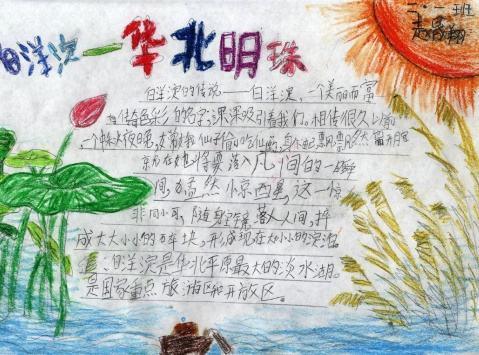 二·一班
白洋淀—华北明珠
白洋淀的传说——白洋淀,一个美丽而富
有传奇色彩的名字,深深吸引着我们。相传很久以前
一个中秋夜晚,嫦娥仙子偷吃仙药,身不由己飘飘然离开月宫
就在她将要落入凡间的一瞬
间,猛然惊醒,这一惊
非同小可,随身宝镜落入人间,摔
成大大小小的143块,形成现在大小小的淀泊。
白洋淀是华北平原最大的淡水湖。
是国家重点旅游区和开放区。